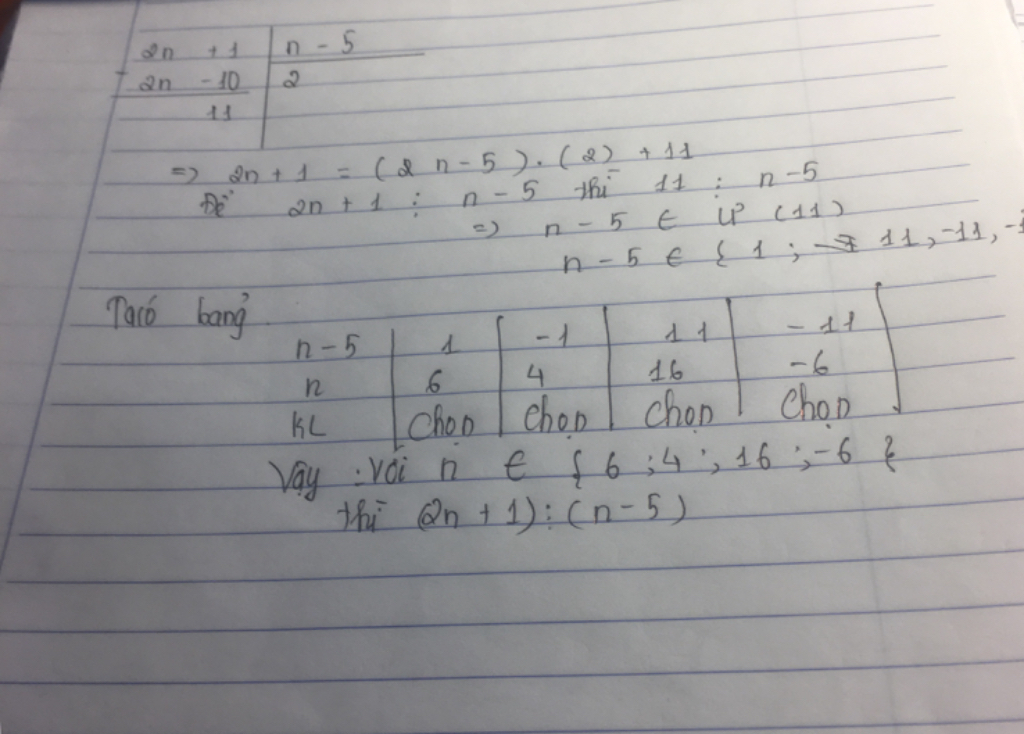 2n + 1 | n - 5
- 2n - 10 | 2
11
=> 2n + 1 = (2 n - 5) . (2) + 11
Để 2n + 1 ⋮ n - 5 thì 11 ⋮ n - 5
=> n - 5 ∈ Ư (11)
n - 5 ∈ { 1 ; 11, -11, -1
Ta có bảng
n - 5 | 1 | -1 | 11 | -11
n | 6 | 4 | 16 | -6
KL | Chọn | Chọn | Chọn | Chọn
Vậy : với n ∈ { 6 ; 4 ; 16 ; -6 }
thì (2n + 1) ⋮ (n - 5)